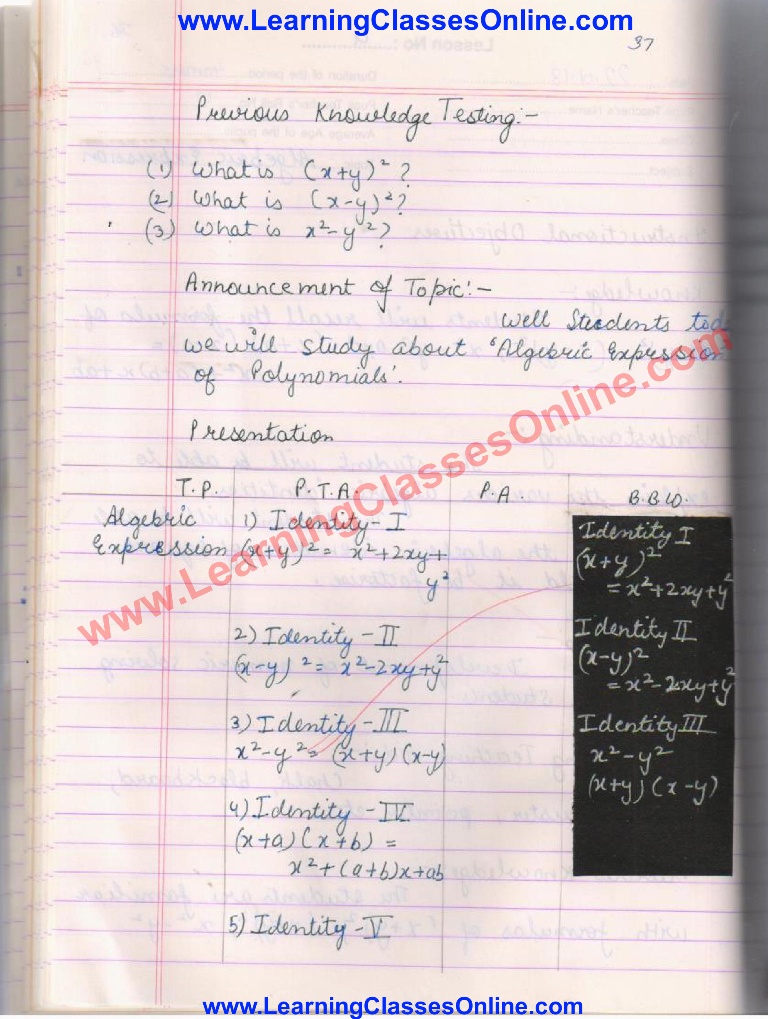 www.LearningClassesOnline.com
37
Previous Knowledge Testing:-
(1) What is (x+y)²?
(2) What is (x-y)²?
(3) What is x²-y²?
Announcement of Topic:-
Well Students tod
we will study about 'Algebric Expression
of Polynomials'.
Presentation
T.P. P.T.A. P.A. B.B.W.
Algebric
Expression
1) Identity-I
(x+y)² = x²+2xy+
y²
2) Identity-II
(x-y)² = x²-2xy+y²
3) Identity-III
x²-y² = (x+y)(x-y)
4) Identity-IV
(x+a)(x+b) =
x²+(a+b)x+ab
5) Identity-V
Identity I
(x+y)²
= x²+2xy+y²
Identity II
(x-y)²
= x²-2xy+y²
Identity III
x²-y²
(x+y)(x-y)
www.LearningClassesOnline.com
www.LearningClassesOnline.com